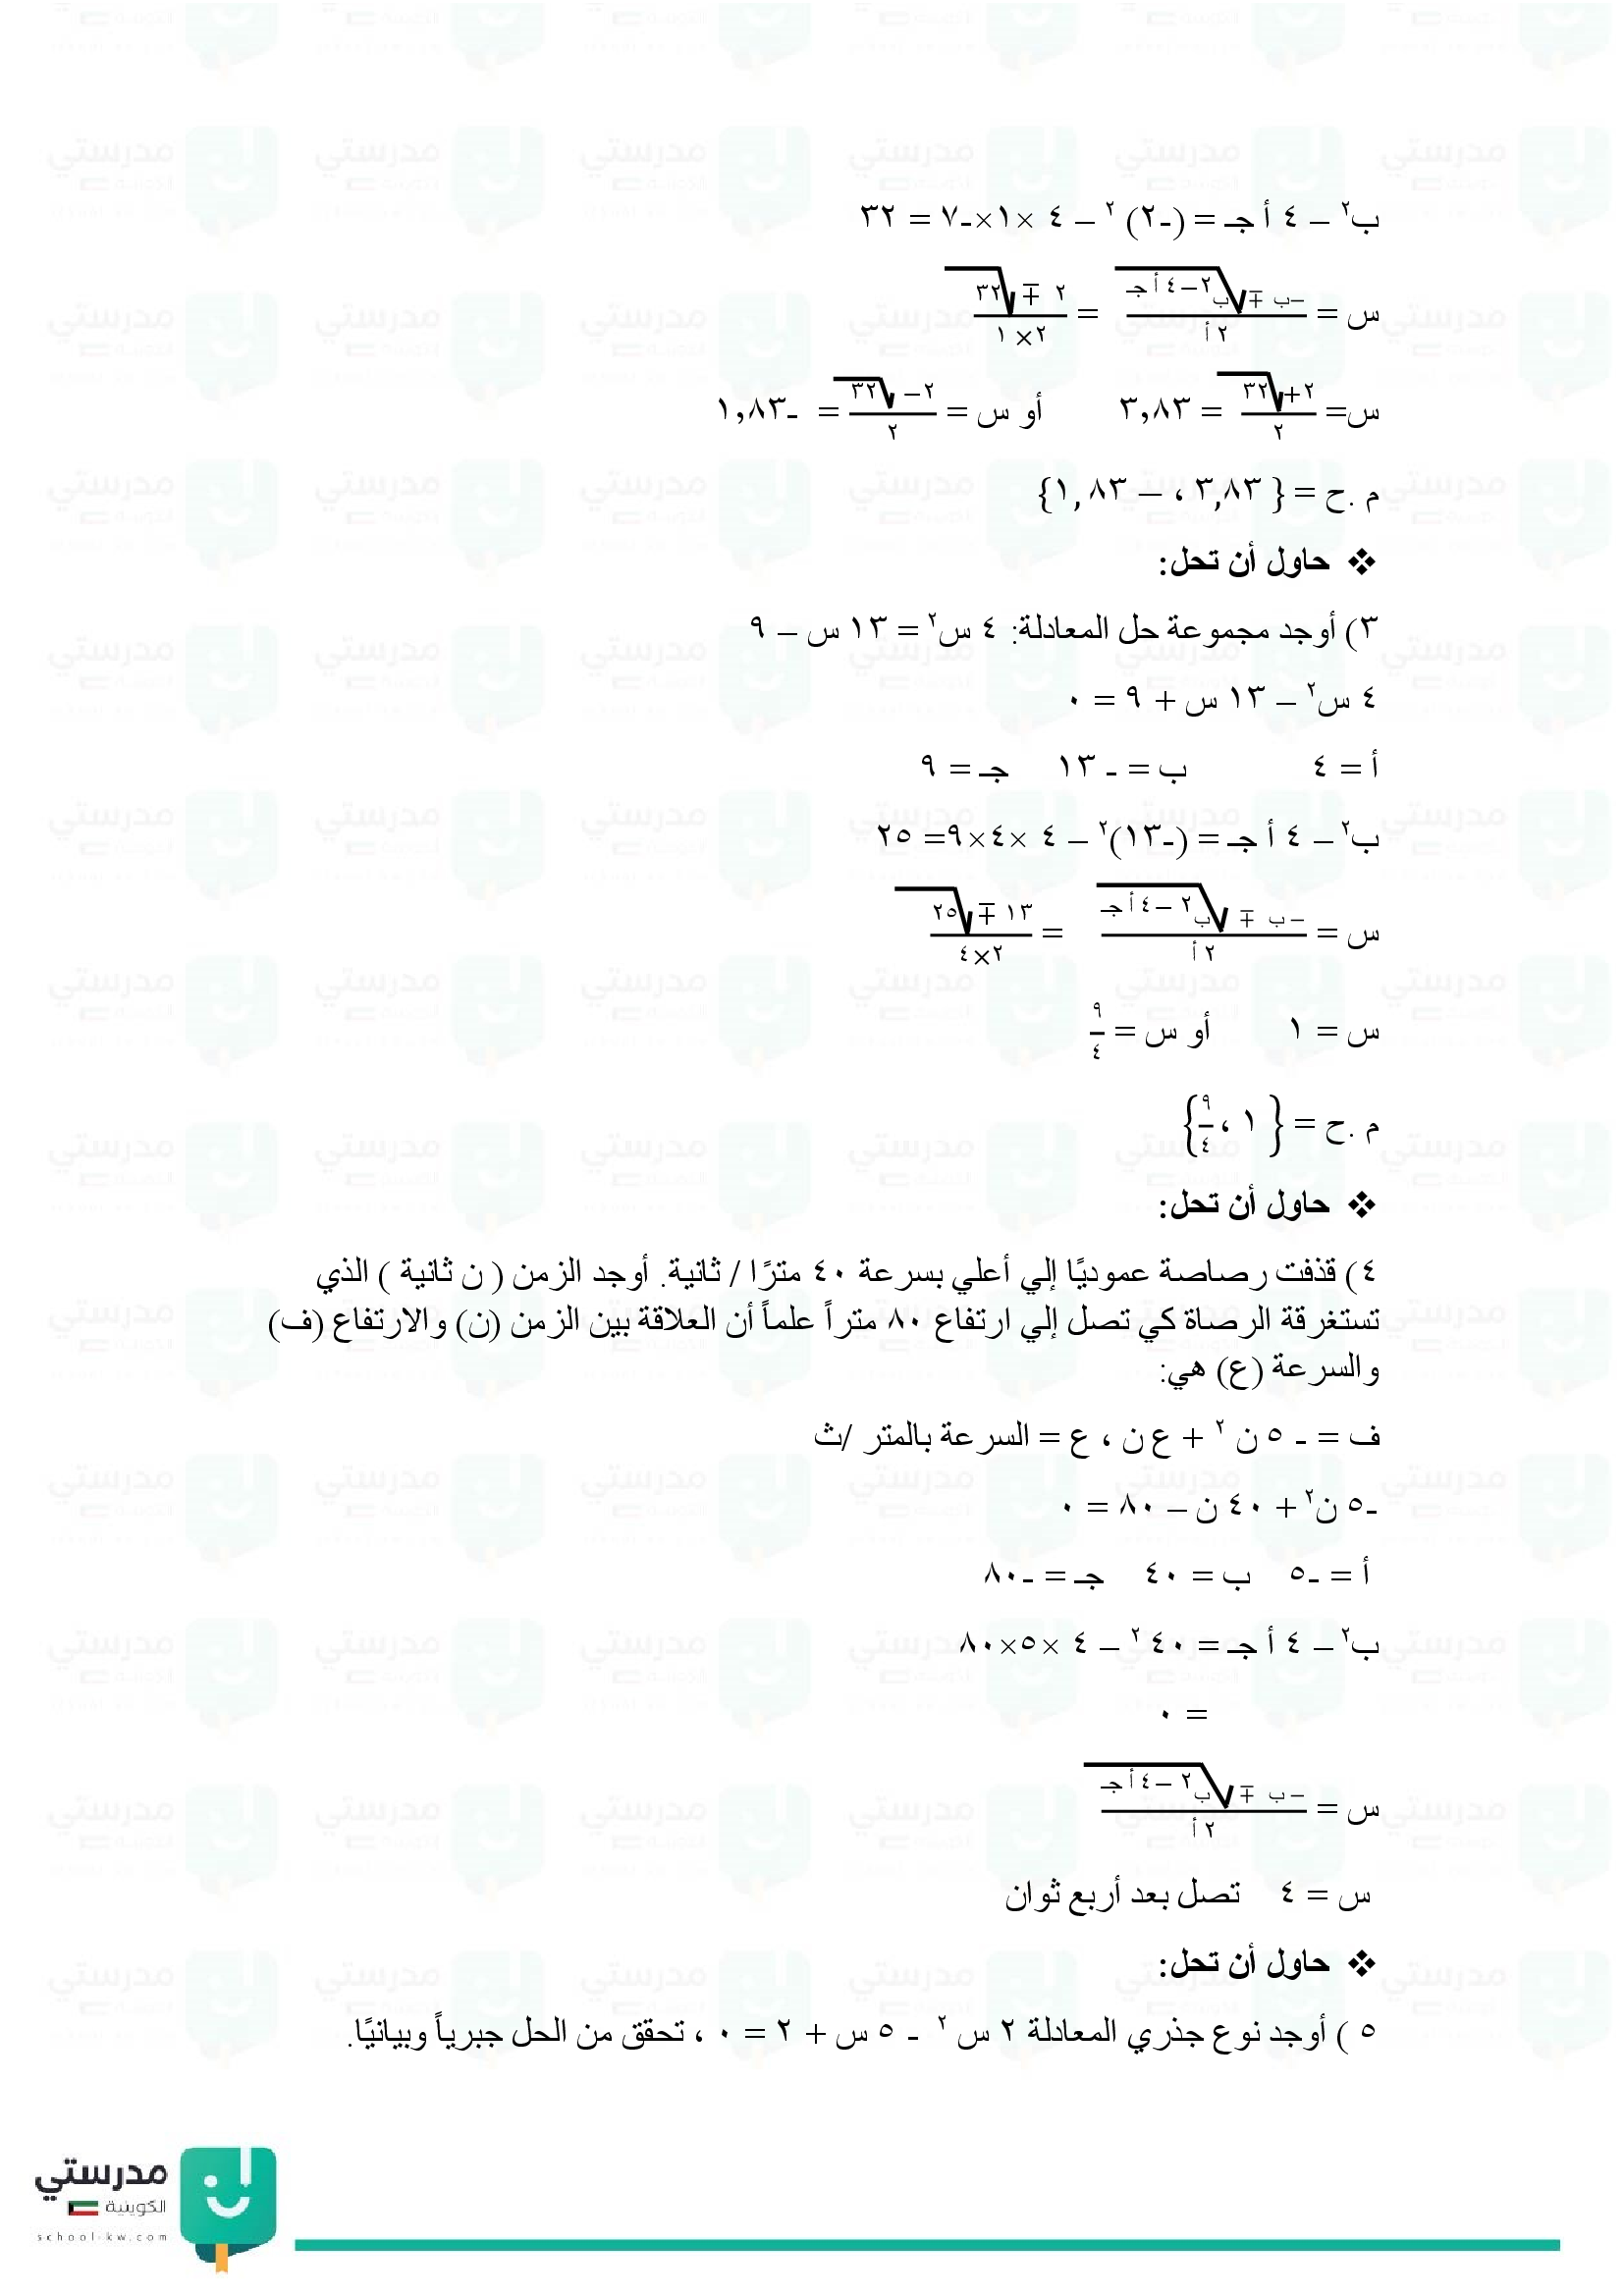 ب٢ – ٤ أ جـ = (-٢) ٢ – ٤ ×١×-٧ = ٣٢
س = (–ب ∓ √ب٢ – ٤ أ جـ) / ٢ أ = (٢ ∓ √٣٢) / ٢×١
س= (٢+√٣٢) / ٢ = ٣,٨٣ أو س = (٢ – √٣٢) / ٢ = -١,٨٣
م .ح = { ٣,٨٣ ، – ١,٨٣}
❖ حاول أن تحل:
٣) أوجد مجموعة حل المعادلة: ٤ س٢ = ١٣ س – ٩
٤ س٢ – ١٣ س + ٩ = ٠
أ = ٤ ب = - ١٣ جـ = ٩
ب٢ – ٤ أ جـ = (-١٣)٢ – ٤ ×٤×٩= ٢٥
س = (– ب ∓ √ب٢ – ٤ أ جـ) / ٢ أ = (١٣ ∓ √٢٥) / ٢×٤
س = ١ أو س = ٩/٤
م .ح = { ١ ، ٩/٤}
❖ حاول أن تحل:
٤) قذفت رصاصة عموديًا إلي أعلي بسرعة ٤٠ مترًا / ثانية. أوجد الزمن ( ن ثانية ) الذي
تستغرقة الرصاة كي تصل إلي ارتفاع ٨٠ متراً علماً أن العلاقة بين الزمن (ن) والارتفاع (ف)
والسرعة (ع) هي:
ف = - ٥ ن ٢ + ع ن ، ع = السرعة بالمتر /ث
-٥ ن٢ + ٤٠ ن – ٨٠ = ٠
أ = -٥ ب = ٤٠ جـ = -٨٠
ب٢ – ٤ أ جـ = ٤٠ ٢ – ٤ ×٥×٨٠
= ٠
س = (– ب ∓ √ب٢ – ٤ أ جـ) / ٢ أ
س = ٤ تصل بعد أربع ثوان
❖ حاول أن تحل:
٥ ) أوجد نوع جذري المعادلة ٢ س ٢ - ٥ س + ٢ = ٠ ، تحقق من الحل جبرياً وبيانيًا.
مدرستي
الكويتية
school-kw.com